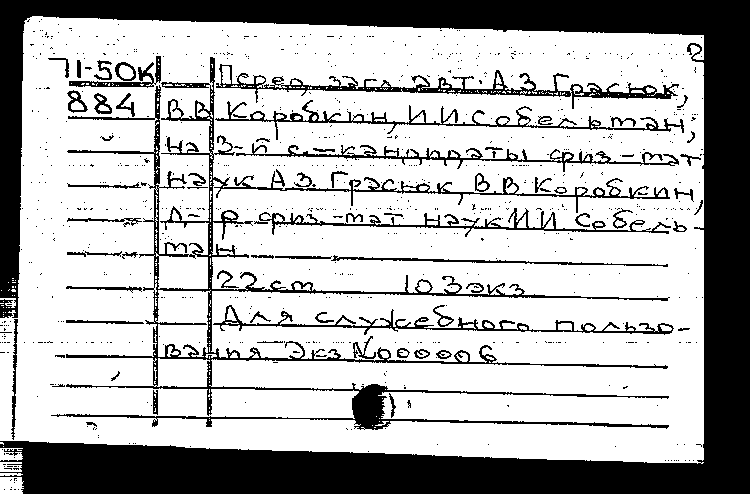 2
71-50К Перед загл. авт. А.З. Грасюк,
884 В.В. Коробкин, И.И. Собельман,
на 3-й с. - кандидаты физ.-мат.
наук А.З. Грасюк, В.В. Коробкин,
д-р физ.-мат наук И.И. Собель-
ман
22 см 103 экз
Для служебного пользо-
вания. Экз №000006